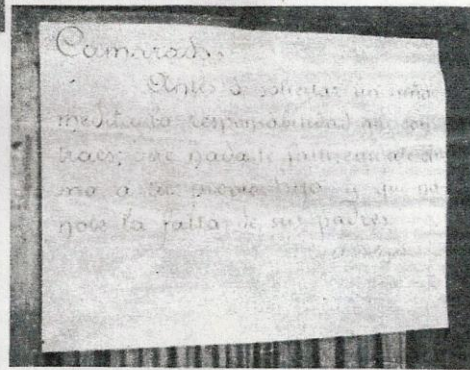 Camarada:
Antes de solicitar un niño
medita la responsabilidad que con
traes; que nada le falte, que
mo a tu propio hijo y que no
note la falta de sus padres